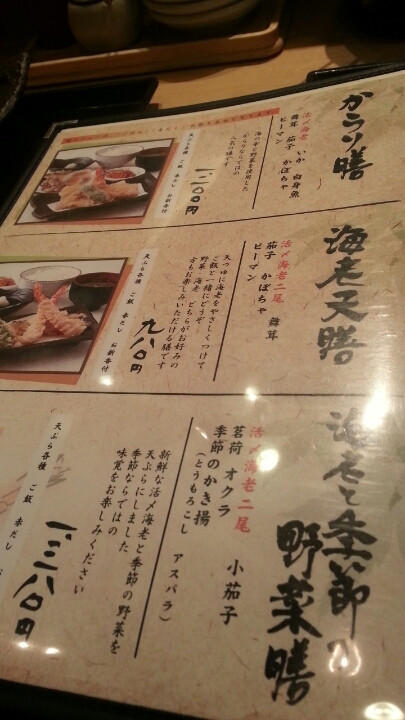 からり膳
活〆海老 いか 白身魚
舞茸 茄子 かぼちゃ
ピーマン
海の幸と野菜を使用した
からりならではの
人気の膳です
一二〇〇円
天ぷら各種 ご飯 赤だし お新香付
海老天膳
活〆海老二尾 舞茸
茄子 かぼちゃ
ピーマン
天つゆに海老をやさしくつけて
ご飯と一緒にどうぞ
野菜・海老 どちらがお好みの
方もお楽しみいただける膳です
九八〇円
天ぷら各種 ご飯 赤だし お新香付
海老と季節の
野菜膳
活〆海老二尾
茗荷 オクラ 小茄子
季節のかき揚
(とうもろこし アスパラ)
新鮮な活〆海老と季節の野菜を
天ぷらにしました
季節ならではの
味覚をお楽しみください
一、三八〇円
天ぷら各種 ご飯 赤だし